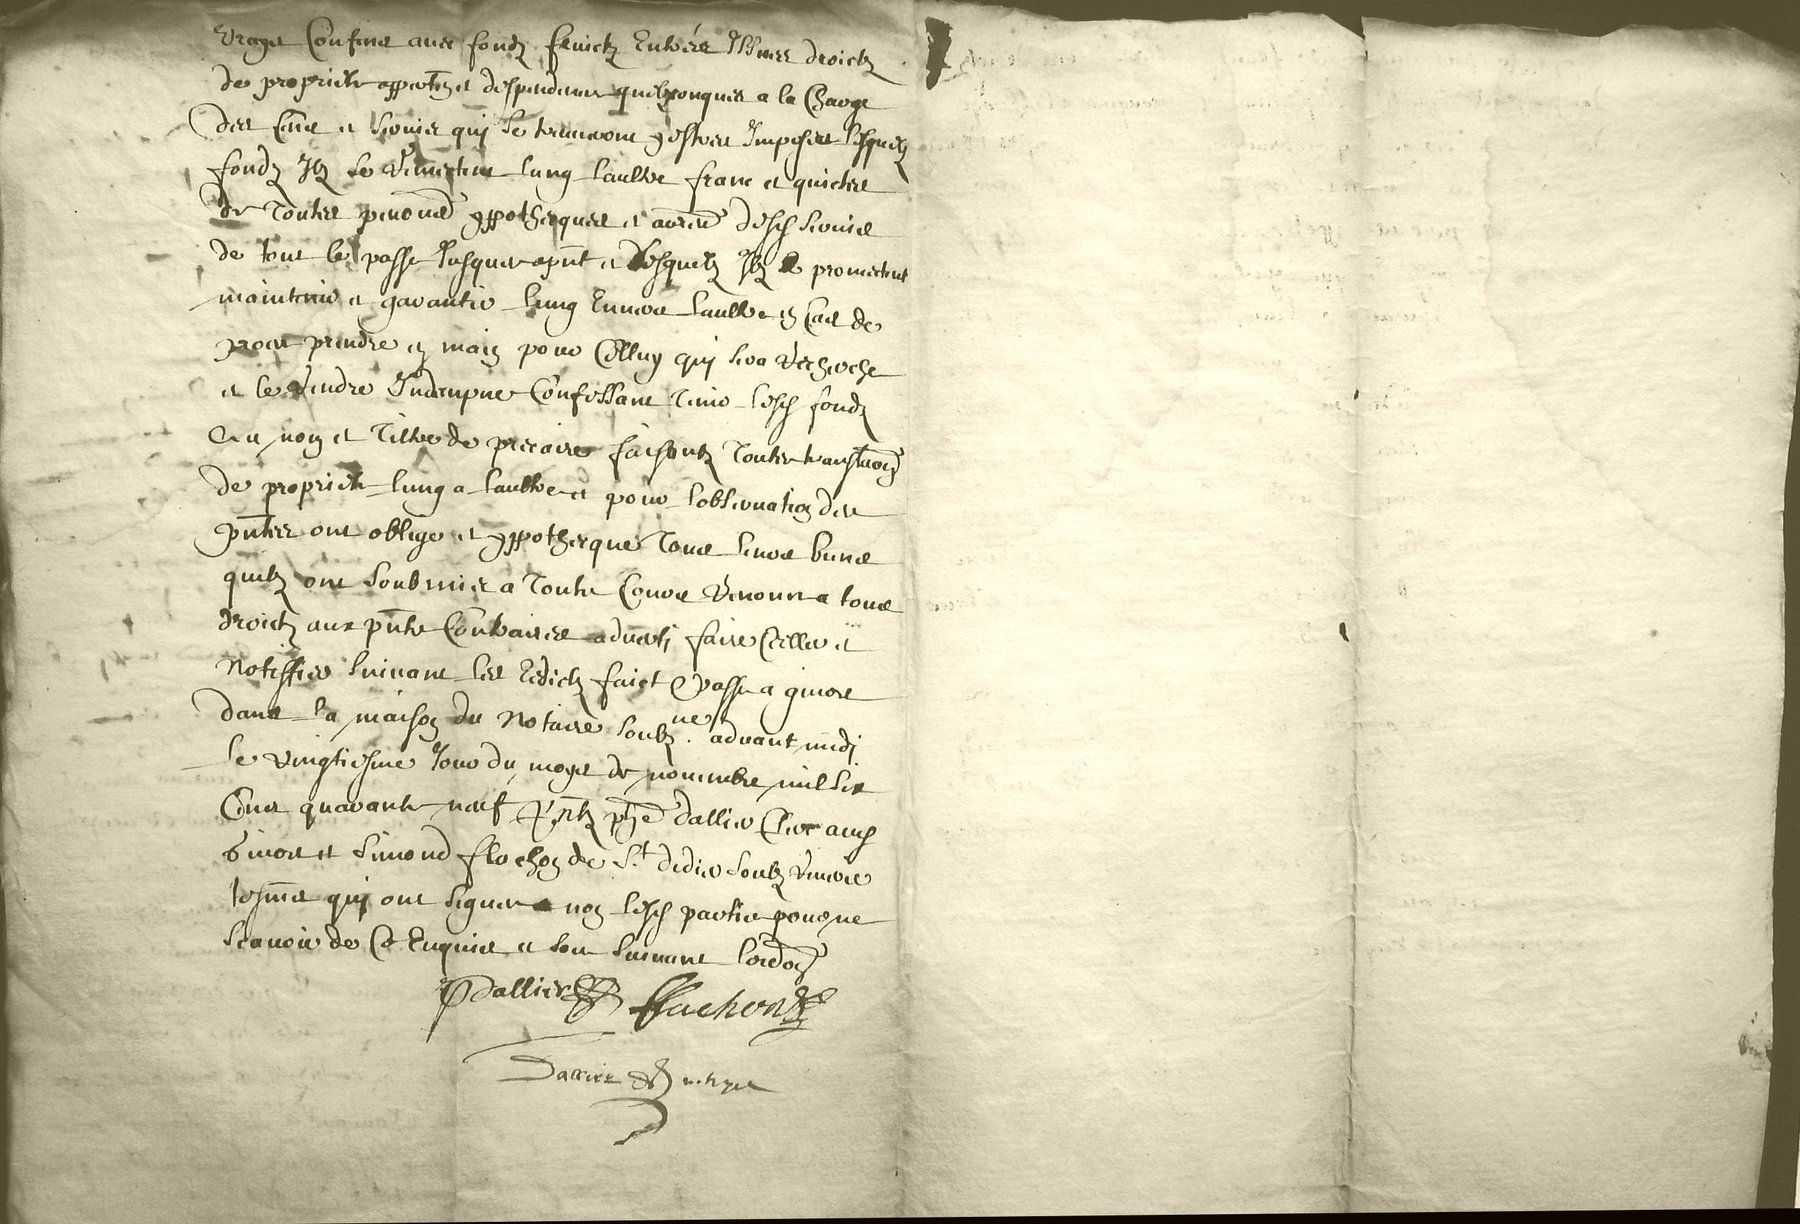 vrays Confins avec fondz fruictz Entrées Yssues droictz
de proprieté appertces et despendences quelzconques a la Charge
des Cens et servis qui se treuveront y estres Imposes lesquelz
fondz Ilz se remettent lung laultre franc et quictes
de Toutes ypothecques et desd servis
de tout le passe Jusques a pnt et desquelz Ilz se promectent
maintenir et garantir lung Envers laultre en Cas de
proces prendre en main pour Celluy qui sera recherche
et le rendre Indempne Confessant Tenir lesd fondz
Au nom et Tiltre de precaire faisantz Toutes
de proprieté lung a laultre et pour lobservation des
pntes ont oblige et ypothecque Tous leurs biens
quilz ont soubmis a Toute Cours Renonce a tous
droictz aux pntes Contraires adverti faire Celler et
Notiffier suivant les Edictz faict et passe a
dans la maison du Notaire soubzne advant midi
le vingtiesme Jour du moys de novembre mil six
Cens quarante neuf Dallier Clerc aud
et Simond flachon de St didier soubz
tesms qui ont signer et non lesd parties pour ne
scavoir de Ce Enquis et suivant
Dallier flachon
Dallier